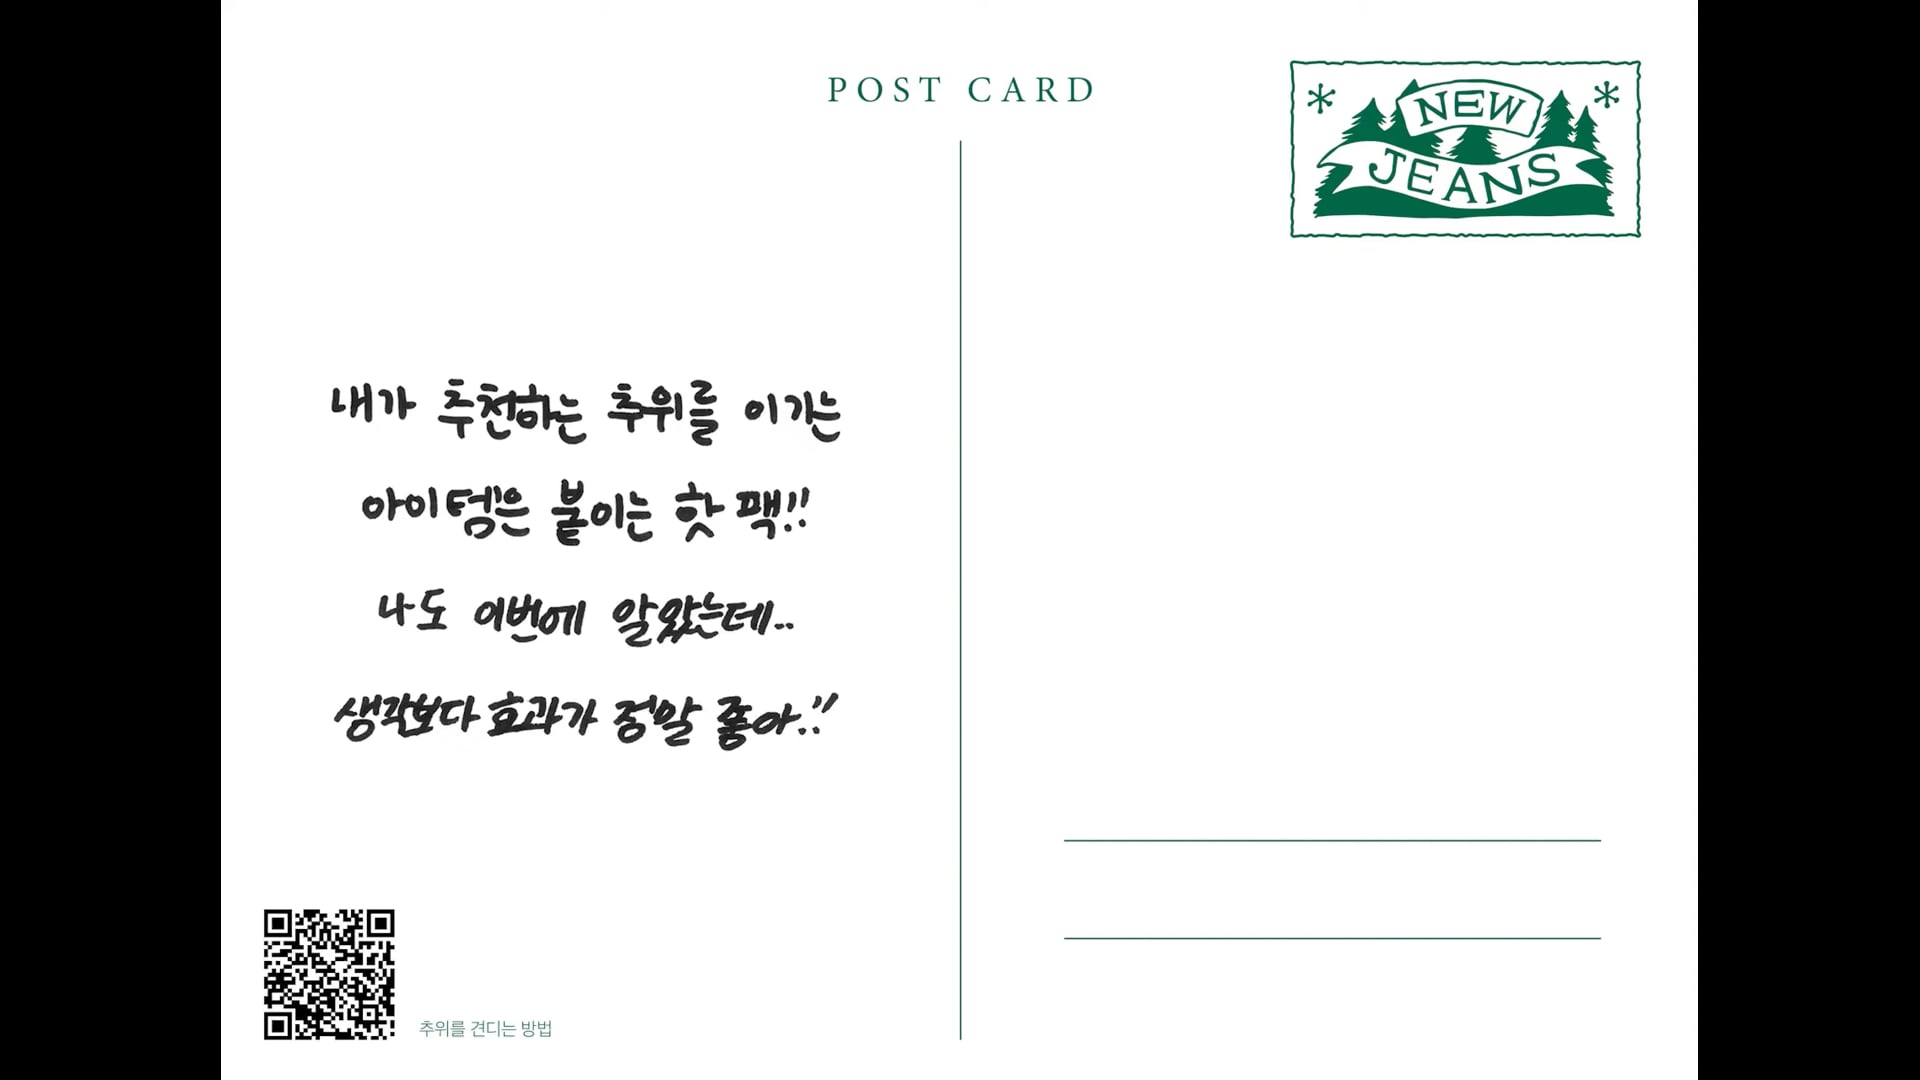 POST CARD
NEW
JEANS
내가 추천하는 추위를 이기는
아이템은 붙이는 핫 팩!!
나도 이번에 알았는데..
생각보다 효과가 정말 좋아..!!
추위를 견디는 방법